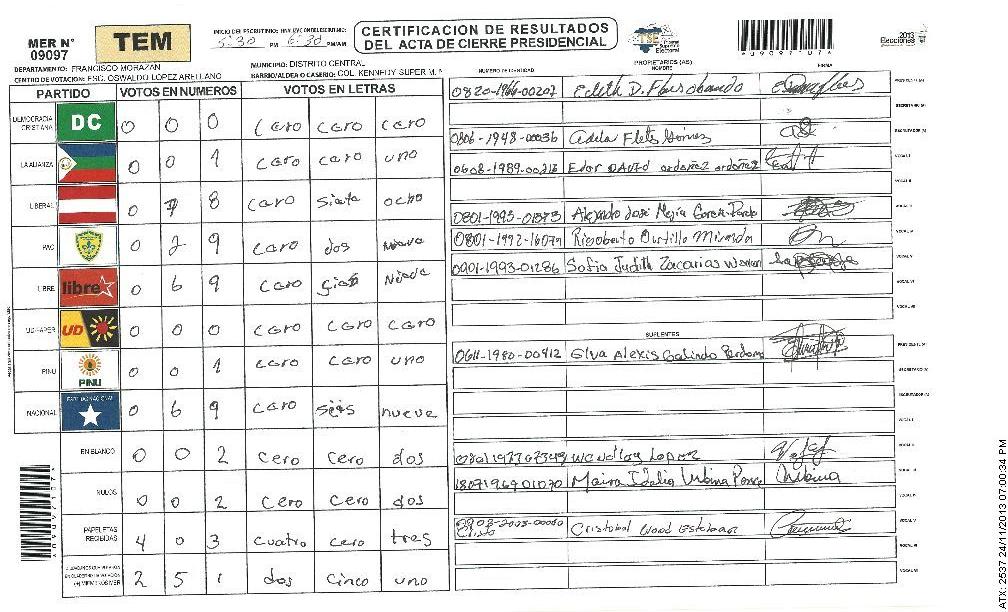 MER N° 09097
TEM
INICIO DEL ESCRUTINIO: 5:30 PM 6:30 PM/AM
CERTIFICACION DE RESULTADOS
DEL ACTA DE CIERRE PRESIDENCIAL
TSE Tribunal Supremo Electoral
2013 Elecciones
DEPARTAMENTO: FRANCISCO MORAZAN
MUNICIPIO: DISTRITO CENTRAL
CENTRO DE VOTACION: ESC. OSWALDO LOPEZ ARELLANO
BARRIO/ALDEA O CASERIO: COL. KENNEDY SUPER M. N
PARTIDO VOTOS EN NUMEROS VOTOS EN LETRAS
DEMOCRACIA CRISTIANA DC 0 0 0 cero cero cero
LA ALIANZA 0 0 1 cero cero uno
LIBERAL 0 7 8 cero siete ocho
PAC 0 2 9 cero dos nueve
LIBRE libre 0 6 9 cero nueve
UD-FAPER UD 0 0 0 cero cero cero
PINU PINU 0 0 1 cero cero uno
NACIONAL PARTIDO NACIONAL 0 6 9 cero seis nueve
EN BLANCO 0 0 2 cero cero dos
NULOS 0 0 2 cero cero dos
PAPELETAS RECIBIDAS 4 0 3 cuatro cero tres
2 5 1 dos cinco uno
PROPIETARIOS (AS)
NUMERO DE IDENTIDAD NOMBRE FIRMA
0820-1966-00207 Edith D. PRESIDENTE (A)
SECRETARIO (A)
0806-1948-00036 Adela Flets Gómez ESCRUTADOR (A)
0608-1989-00213 Edar DAVID ordoñez ordoñez VOCAL I
VOCAL II
0801-1993-01373 Alejandro José Mejía García-Pardo VOCAL III
0801-1992-16079 Rigoberto Ourtillo Miranda VOCAL IV
0901-1993-01286 Sofia Judith Zacarias VOCAL V
VOCAL VI
VOCAL VII
SUPLENTES
0611-1980-00912 Elva Alexis Galindo Perdomo PRESIDENTE (A)
SECRETARIO (A)
ESCRUTADOR (A)
VOCAL I
Wendloy Lopez VOCAL II
1807196901070 Maira Idalia Urbina Ponce Urbina VOCAL III
VOCAL IV
Cristobal Wood Esteban VOCAL V
VOCAL VI
VOCAL VII
ATX: 2537 24/11/2013 07:00:34 PM